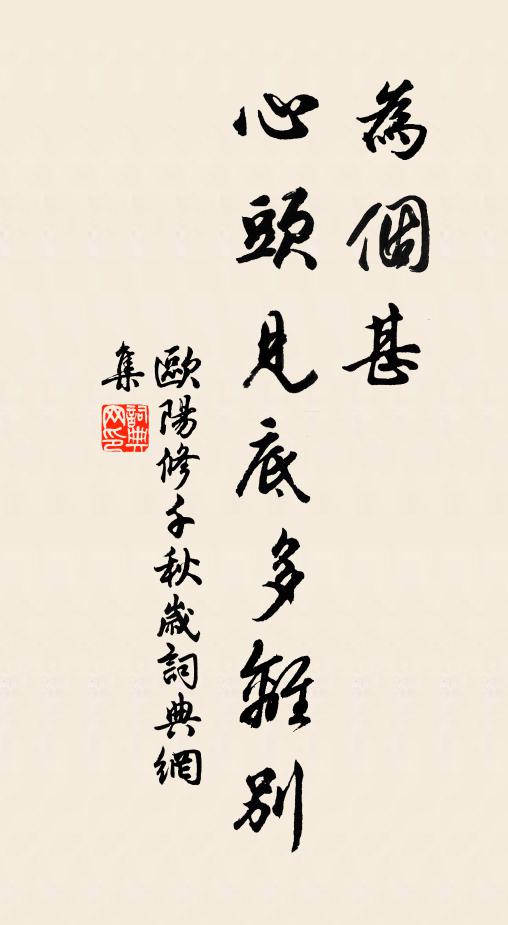 為個甚
心頭見底多離別
歐陽修千秋歲詞典網
集
詞典
网印